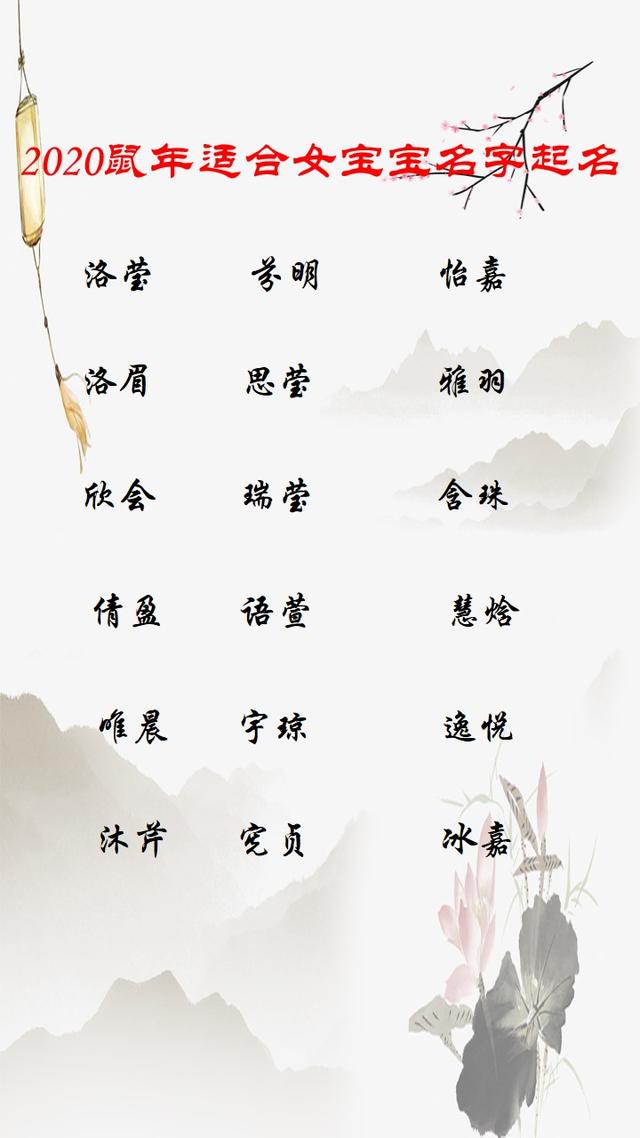 2020鼠年适合女宝宝名字起名
洛莹 芬明 怡嘉
洛眉 思莹 雅羽
欣会 瑞莹 含珠
倩盈 语萱 慧焓
唯晨 宇琼 逸悦
沐芹 宪贞 冰嘉